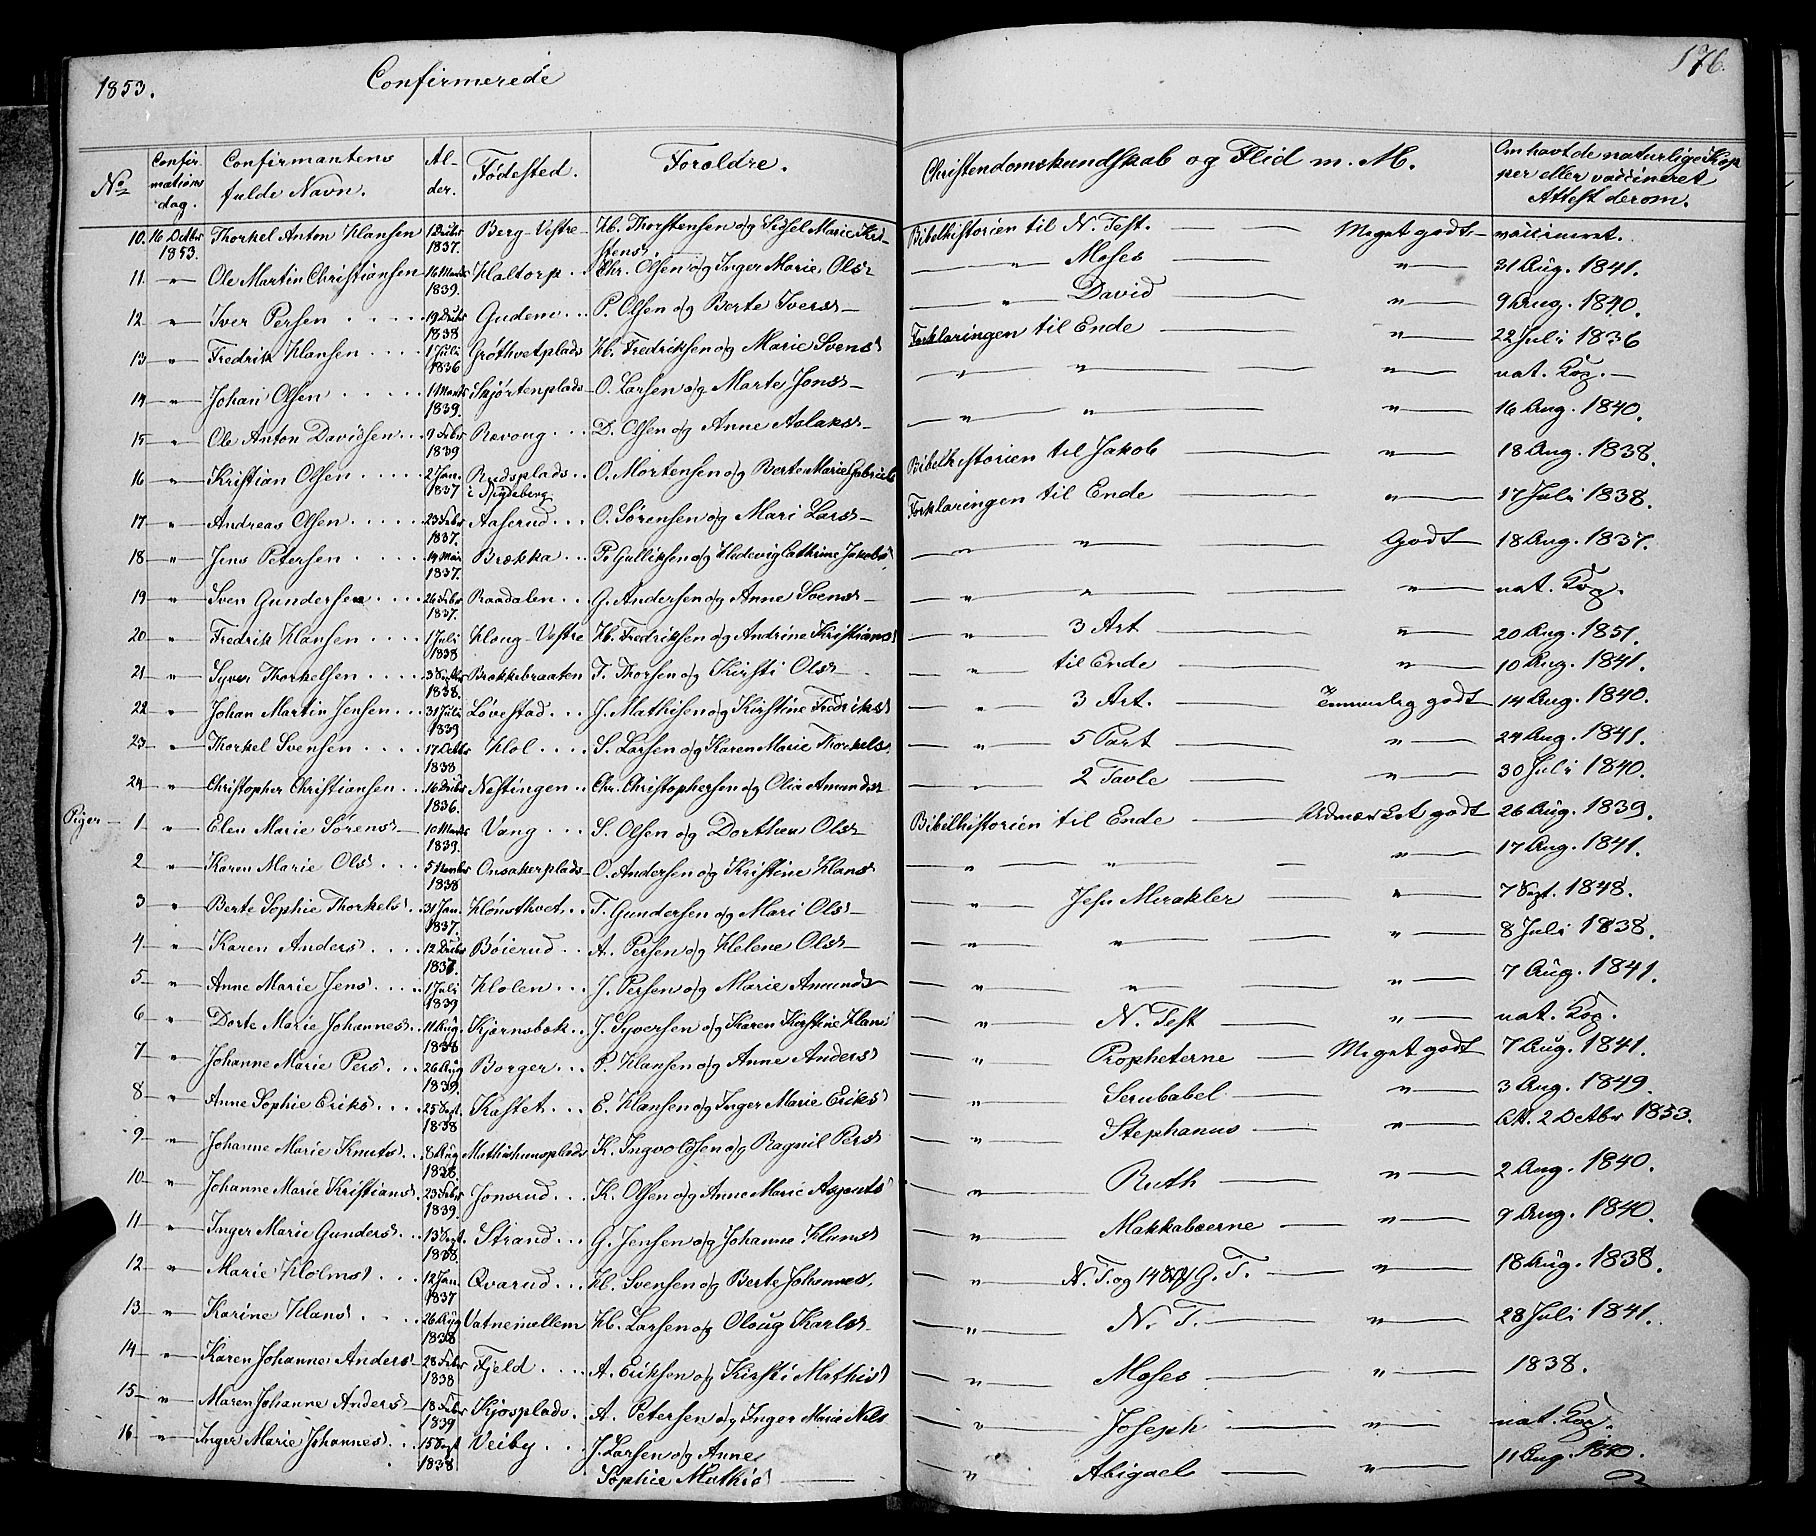 1853. Confirmerede 176.
No Confirmations dag. Confirmantens fulde Navn. Alder. Fødested. Foræloldre. Christendomskundskab og Flid m. M. Om havt de naturlige Kopper eller vaccineret Attest derom.
10. 16 Octbr 1853. Thorkel Anton Hansen 1837. Berg-Vestre H. Thorstensen og Sidsel Marie Bibelhistorien til N. Test. Meget godt vaccineret.
11. " Ole Martin Christiansen 16 Marts 1839. Haltorp Chr. Olsen og Inger Marie Olsd " Moses " 31 Aug. 1841.
12 " Iver Persen 19 1838 Gudem P. Olsen og Berte Iversd " David " 9 Aug. 1840.
13 " Fredrik Hansen 1 Juli 1836 Grøthvetplads H. Fredriksen og Marie Svensd Forklaringen til Ende " 22 Juli 1836
14 " Johan Olsen 1 Marts 1839. Skjørtenplads O. Larsen og Marte Jonsd " " " nat. Kop.
15 " Ole Anton Davidsen 9 Febr 1839 Revoug D. Olsen og Anne Aslaksd " " " 16 Aug. 1840.
16 " Kristian Olsen 2 Jan. 1837 Rudsplads i O. Mortensen og Berte Marie Gabriels Bibelhistorien til Jakob " 18 Aug. 1838.
17 " Andreas Olsen 23 Febr 1837. Aaserud O. Sørensen og Mari Larsd Forklaringen til Ende " 17 Juli 1838.
18 " Jens Petersen 14 Mai 1837. Brækka P. Gulliksen og Hedevig Cathrine Jakobsd " " Godt 18 Aug. 1837.
19 " Sven Gundersen 26 Febr 1837. Raadalen G. Andersen og Anne Svensd " " " nat. Kop.
20 " Fredrik Hansen 1 Juli 1838 Houg-Vestre H. Fredriksen og Andrine Kristiansd " 3 Art " 20 Aug. 1851.
21 " Syver Thorkelsen 3 1838. Brækkebraaten T. Thorsen og Kirsti Olsd " til Ende " 10 Aug. 1841.
22 " Johan Martin Jensen 31 Juli 1839 Løvestad J. Mathisen og Kirstine Fredriksd " 3 Art. Temmelig godt 14 Aug. 1840.
23 " Thorkel Svensen 17 Octbr 1838 Hol S. Larsen og Karen Marie Thorkelsd " 5 Part " 24 Aug. 1841.
24 " Christopher Christiansen 16 1836. Nestingen Chr. Christophersen og Olia Amundsd " 2 Tavle " 30 Juli 1840.
Piger 1 " Elen Marie Sørensd 10 Marts 1839. Vang S. Olsen og Dorthea Olsd Bibelhistorien til Ende Udmærket godt 26 Aug. 1839.
2 " Karen Marie Olsd 5 1838 Onsakerplads O. Andersen og Kristine Hansd " " " 17 Aug. 1841.
3 " Berte Sophie Thorkelsd 31 Jan. 1837. Hønsthvet T. Gundersen og Mari Olsd " Jesu Mirakler " 7 Sept. 1848.
4 " Karen Andersd 12 1837. Bøierud A. Persen og Helene Olsd " " " 8 Juli 1838.
5 " Anne Marie Jensd 1 Juli 1839 Holen J. Persen og Marie Amundsd " " " 7 Aug. 1841.
6 " Dorte Marie Johannesd 11 Aug 1838 Kjørnsbek J. Syversen og Karen Kirstine Hansd " N. Test " nat. Kop.
7 " Johanne Marie Persd 26 Aug 1839. Borger P. Hansen og Anne Andersd " Propheterne Meget godt 7 Aug. 1841.
8 " Anne Sophie Eriksd 25 Sept 1838 Kastet E. Hansen og Inger Marie Eriksd " Serubabel " 3 Aug. 1849.
9 " Johanne Marie Knutsd 8 Aug 1838. K. Ingvoldsen og Ragnil Persd " Stephanus " Att. 2 Octbr 1853.
10 " Johanne Marie Kristiansd 23 Febr 1839. Jonsrud K. Olsen og Anne Marie " Ruth " 2 Aug. 1840.
11 " Inger Marie Gundersd 13 Sept. 1838. Strand G. Jensen og Johanne Hansd " Makkabæerne " 9 Aug. 1840.
12 " Marie Holmsd 12 Jan. 1837 Qvarud H. Svensen og Berte Johannesd " N. T. og 148 G. T. " 18 Aug. 1838.
13 " Karine Hansd 26 Aug 1838 Vatnemellem H. Larsen og Oloug Karlsd " N. T. " 28 Juli 1841.
14 " Karen Johanne Andersd 28 Febr 1838 Fjeld A. Eriksen og Kirsti Mathisd " Moses " 1838.
15 " Maren Johanne Andersd 18 Febr 1839 Kjosplads A. Petersen og Inger Marie Nilsd " Joseph " nat. Kop.
16 " Inger Marie Johannesd 15 Sept 1838 Veiby J. Larsen og Anne Sophie Mathisd " Abigael " 11 Aug. 1840.